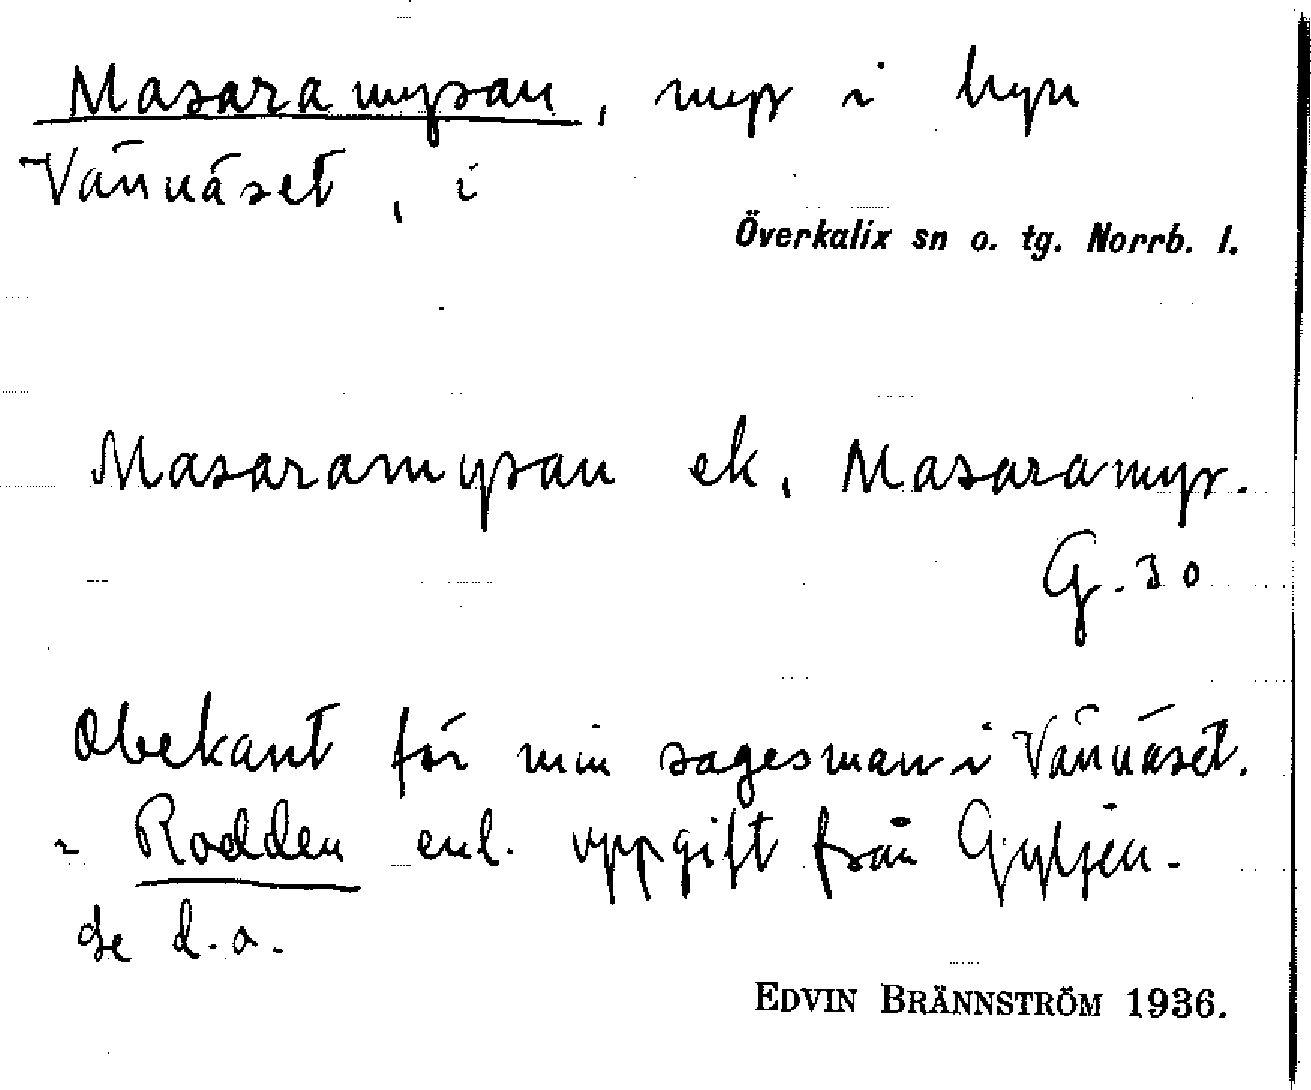 Masaramyran, myr i byn
Vännäset, i
Överkalix sn o. tg. Norrb. l.
Masaramyran ek, Masaramyr.
G. 30
Obekant för min sagesman i Vännäset.
Rödden enl. uppgift från Gyljen.
Se d.o.
EDVIN BRÄNNSTRÖM 1936.